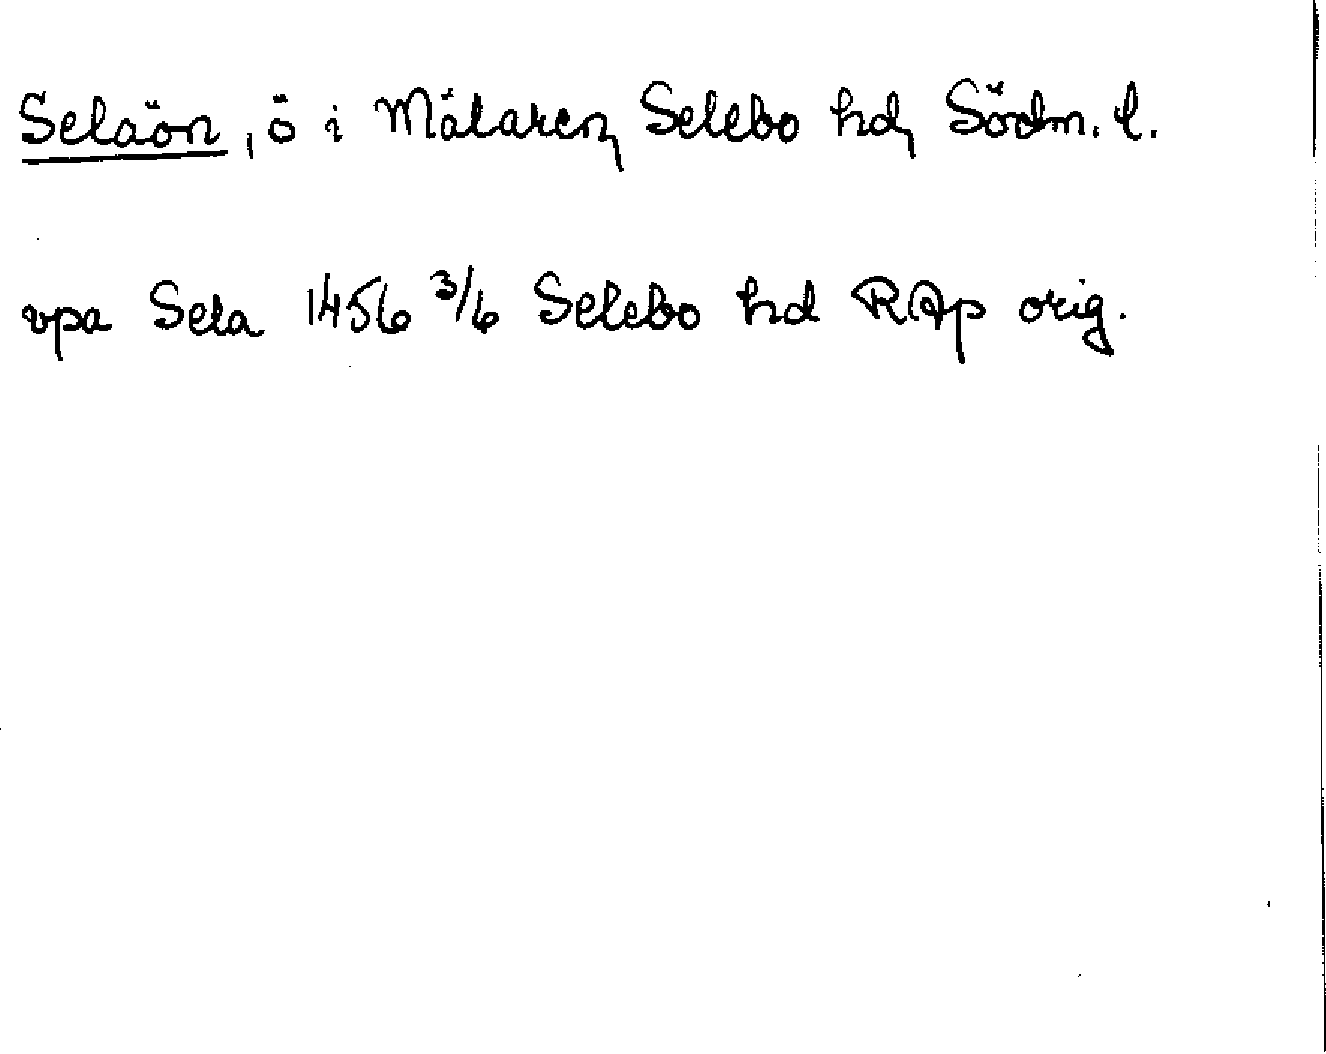 Selaön, ö i Mälaren, Selebo hd, Södm. l.
vpa Sela 1456 3/6 Selebo hd RAp orig.